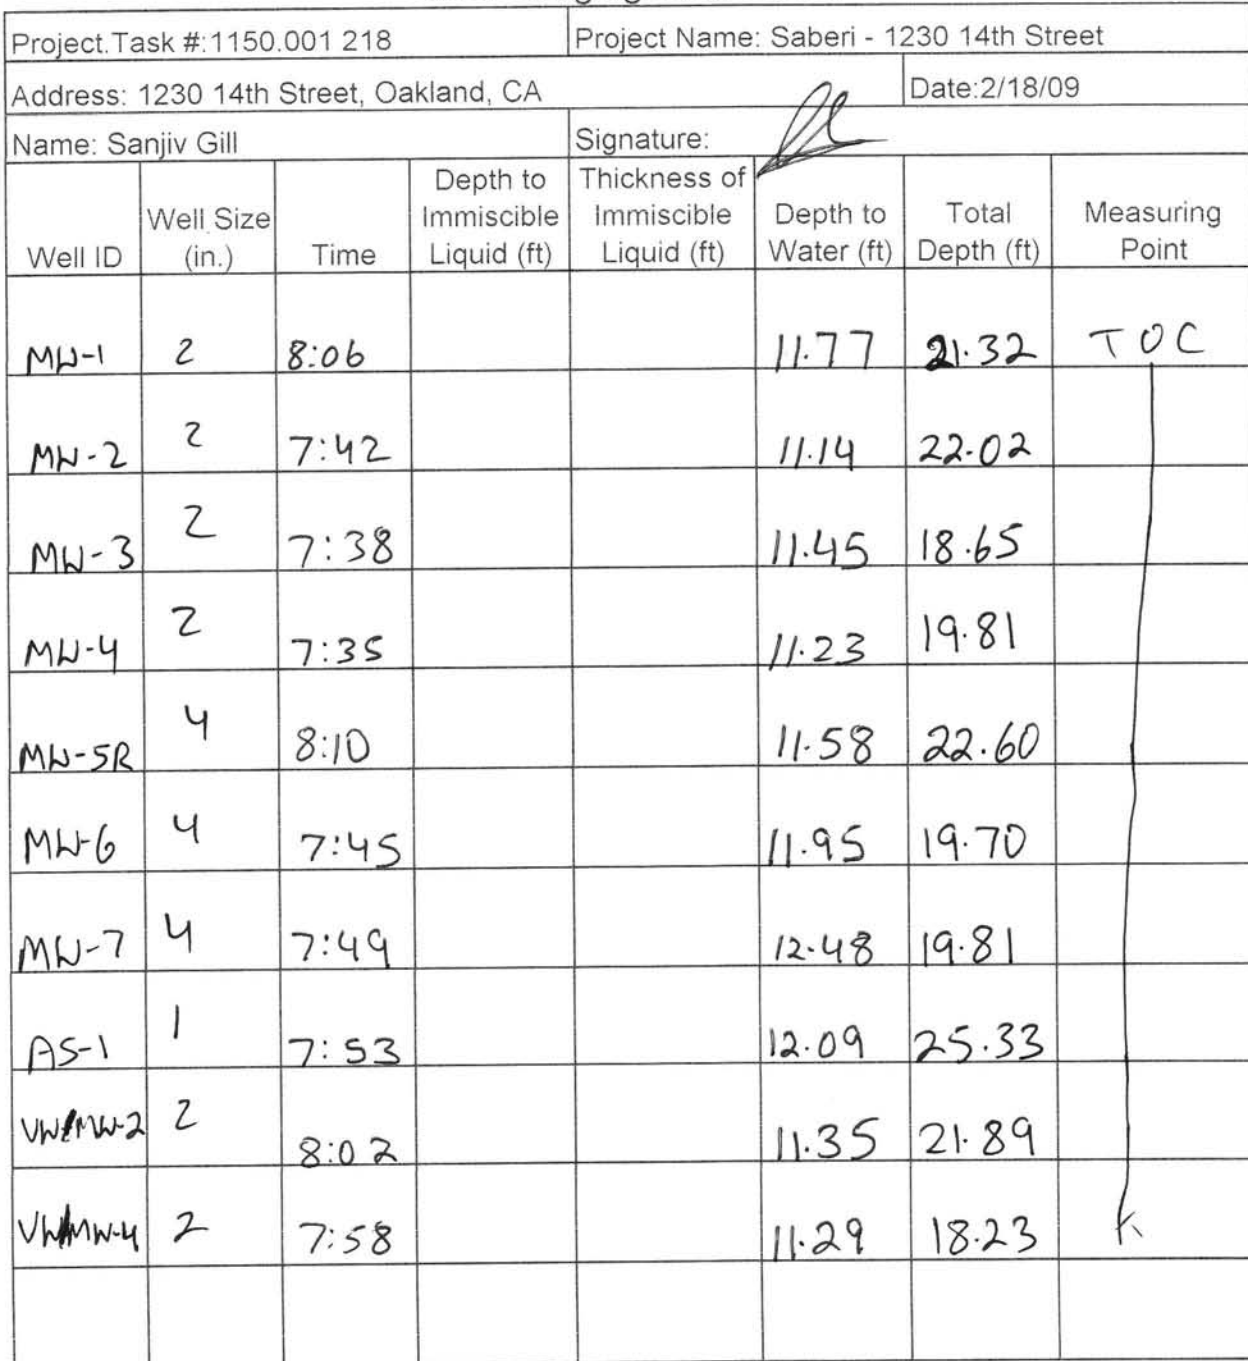 Project.Task #:1150.001 218 Project Name: Saberi - 1230 14th Street
Address: 1230 14th Street, Oakland, CA Date:2/18/09
Name: Sanjiv Gill Signature:
Well ID Well Size (in.) Time Depth to Immiscible Liquid (ft) Thickness of Immiscible Liquid (ft) Depth to Water (ft) Total Depth (ft) Measuring Point
MW-1 2 8:06 11.77 21.32 TOC
MW-2 2 7:42 11.14 22.02
MW-3 2 7:38 11.45 18.65
MW-4 2 7:35 11.23 19.81
MW-5R 4 8:10 11.58 22.60
MW-6 4 7:45 11.95 19.70
MW-7 4 7:49 12.48 19.81
AS-1 1 7:53 12.09 25.33
VW/MW-2 2 8:02 11.35 21.89
VW/MW-4 2 7:58 11.29 18.23